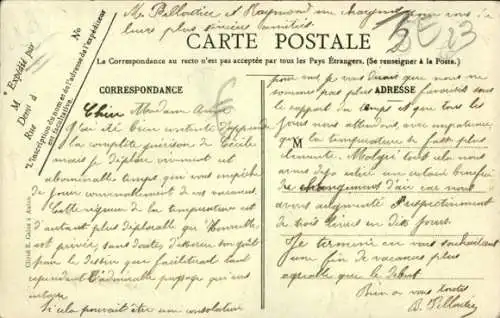 Mr Pelloutier et Raymond me chargent pour vous de
leurs plus sincères amitiés
CARTE POSTALE
La Correspondance au recto n'est pas acceptée par tous les Pays Étrangers. (Se renseigner à la Poste.)
M
Expédié par
Demt à
Rue
No
"L'inscription du nom et de l'adresse de l'expéditeur
est facultative.
CORRESPONDANCE
Chère Madame
J'ai été bien contente d'apprendre
la complète guérison de Cécile
mais je déplore vivement cet
abominable temps qui vous empêche
de jouir convenablement de vos vacances.
Cette rigueur de la température est
d'autant plus déplorable que
est privée, sans doute, d'exercer son goût
pour le dessin que faciliterait tant
cependant l'admirable paysage qui vous
entoure.
Si cela pouvait être une consolation
pour vous je vous dirais que nous ne
sommes pas plus favorisés sous
ADRESSE
le rapport du temps et que tous les
jours nous attendons, avec impatience
M
que la température se fasse plus
clémente. Malgré tout cela nous
avons déjà retiré un certain bénéfice
de changement d'air car nous
avons augmenté respectivement
de trois livres en dix jours.
Je termine en vous souhaitant
une fin de vacances plus
agréable que le début
Bien à vous toutes
Pelloutier
Cliché E. Caïus à Autun